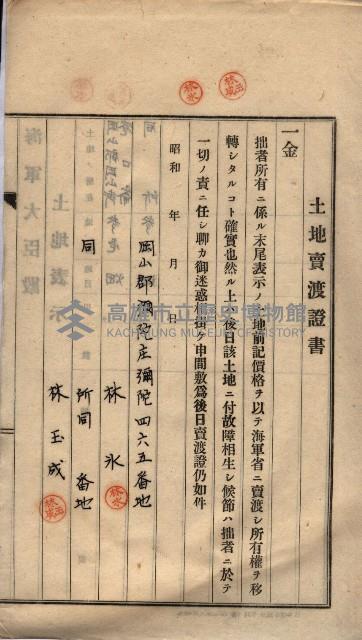 土地賣渡證書
一金
拙者所有ニ係ル末尾表示ノ土地前記價格ヲ以テ海軍省ニ賣渡シ所有權ヲ移
轉シタルコト確實也然ル上ハ後日該土地ニ付故障相生シ候節ハ拙者ニ於テ
一切ノ責ニ任シ聊カ御迷惑相掛ケ申間敷爲後日賣渡證仍如件
昭和 年 月 日
岡山郡彌陀庄彌陀四六五番地
林氷
同 所同 番地
林玉成
海軍大臣殿
土地表示
高雄市立歷史博物館
KAOHSIUNG MUSEUM OF HISTORY